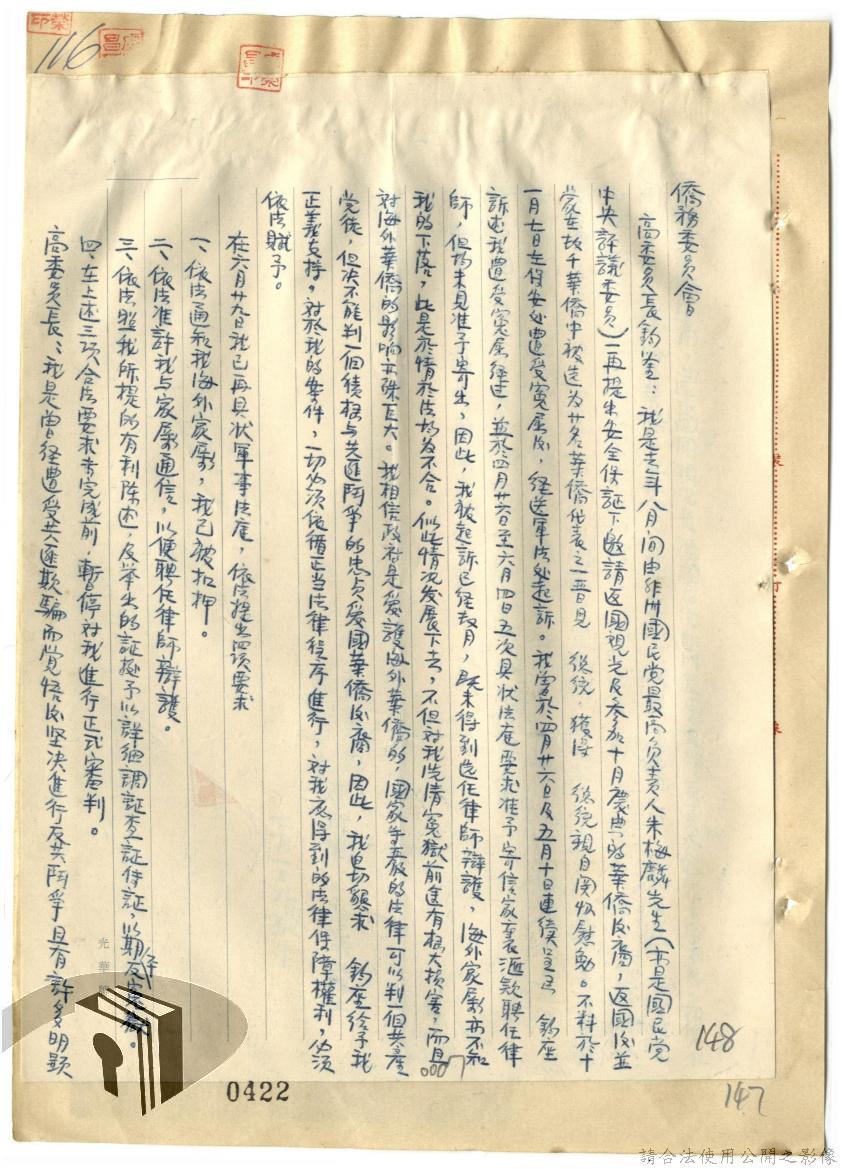 116
僑務委員會
高委員長鈞鉴：我是去年八月間由非洲國民党最高负责人朱梅麟先生（亦是國民党
中央評議委員）一再提出安全保証下邀請返國視光及参加十月慶典的華僑後裔，返國後並
蒙在数千華僑中被选为廿名華僑代表之一晋見　總統，獲得　總統親自関怀慰勉。不料於十
一月七日在保安处遭受冤屈後，经送軍法处起訴。我曾於四月廿六日及五月十日連续呈函　鈞座
訴述我遭受冤屈经过，並於四月廿六日至六月四日五次具状法庭要求准予寄信家裏滙款聘任律
師，但均未見准予寄出，因此，我被起訴已经数月，既未得到选任律師辯護，海外家屬亦不知
我的下落，此是於情於法均为不合。似此情况发展下去，不但对我洗清冤獄前途有极大损害，而且
对海外華僑的影响亦殊巨大。我相信政府是爱護海外華僑的，國家手裏的法律可以判一個共產
党徒，但决不能判一個積极与共匪鬥爭的忠贞爱國華僑後裔，因此，我急切懇求　鈞座给予我
正義支持。对於我的案件，一切必須依循正当法律程序進行，对我应得到的法律保障權利，必须
依法賦予。
在六月廿九日我已再具状軍事法庭，依法提出四项要求
一、依法通知我海外家屬，我已被扣押。
二、依法准許我与家屬通信，以便聘任律師辯護。
三、依法照我所提的有利陈述，及举出的証据予以詳細調証查証传証，以期平反冤獄。
四、在上述三项合法要求未完成前，暫停对我進行正式審判。
高委員長：我是曾经遭受共匪欺騙而党悟後坚决進行反共鬥爭且有許多明顯
光華
0007
148
147
0422
請合法使用公開之影像